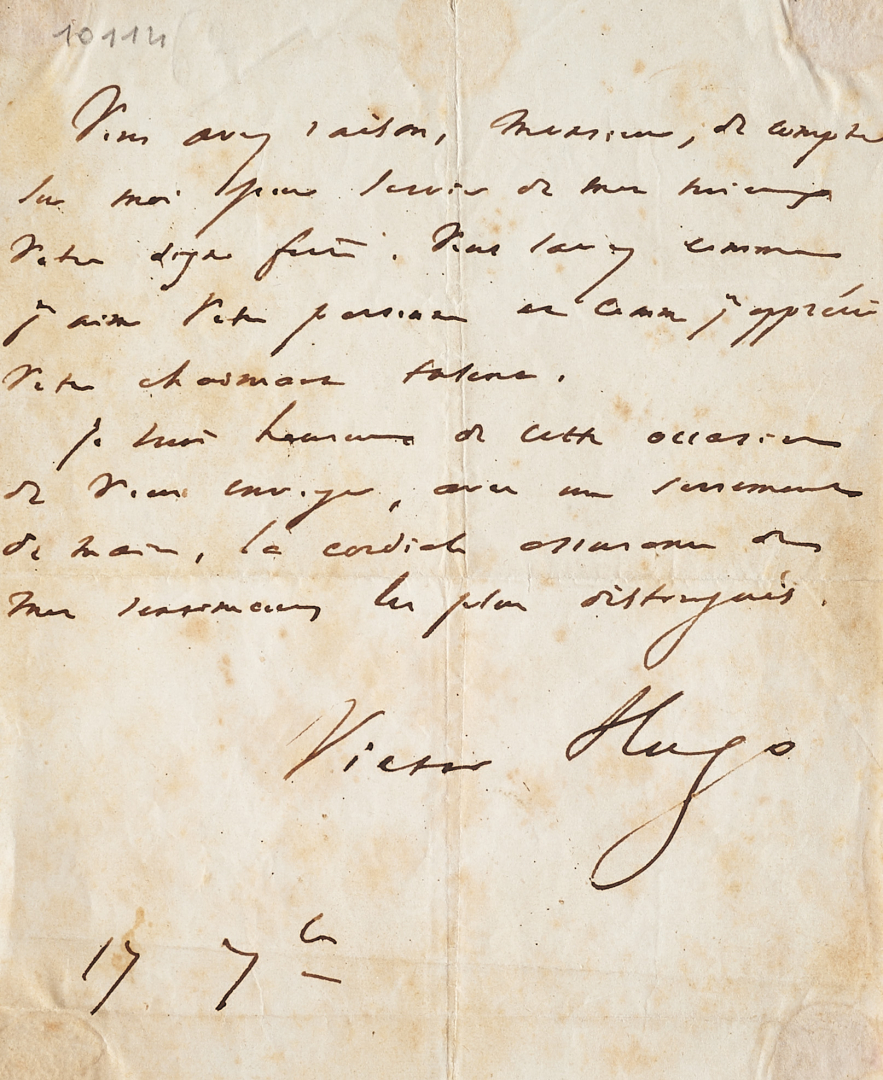 10114
Vous avez raison, Monsieur, de compter
sur moi pour servir de mon mieux
votre digne . Vous savez comme
j'aime votre personne et comme j'apprécie
votre charmant talent.
Je suis heureux de cette occasion
de vous envoyer, avec un serrement
de main, la cordiale assurance de
mes sentiments les plus distingués.
Victor Hugo
17 7bre